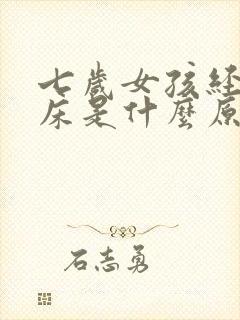 七歲女孩経
床是什麼原
石志勇